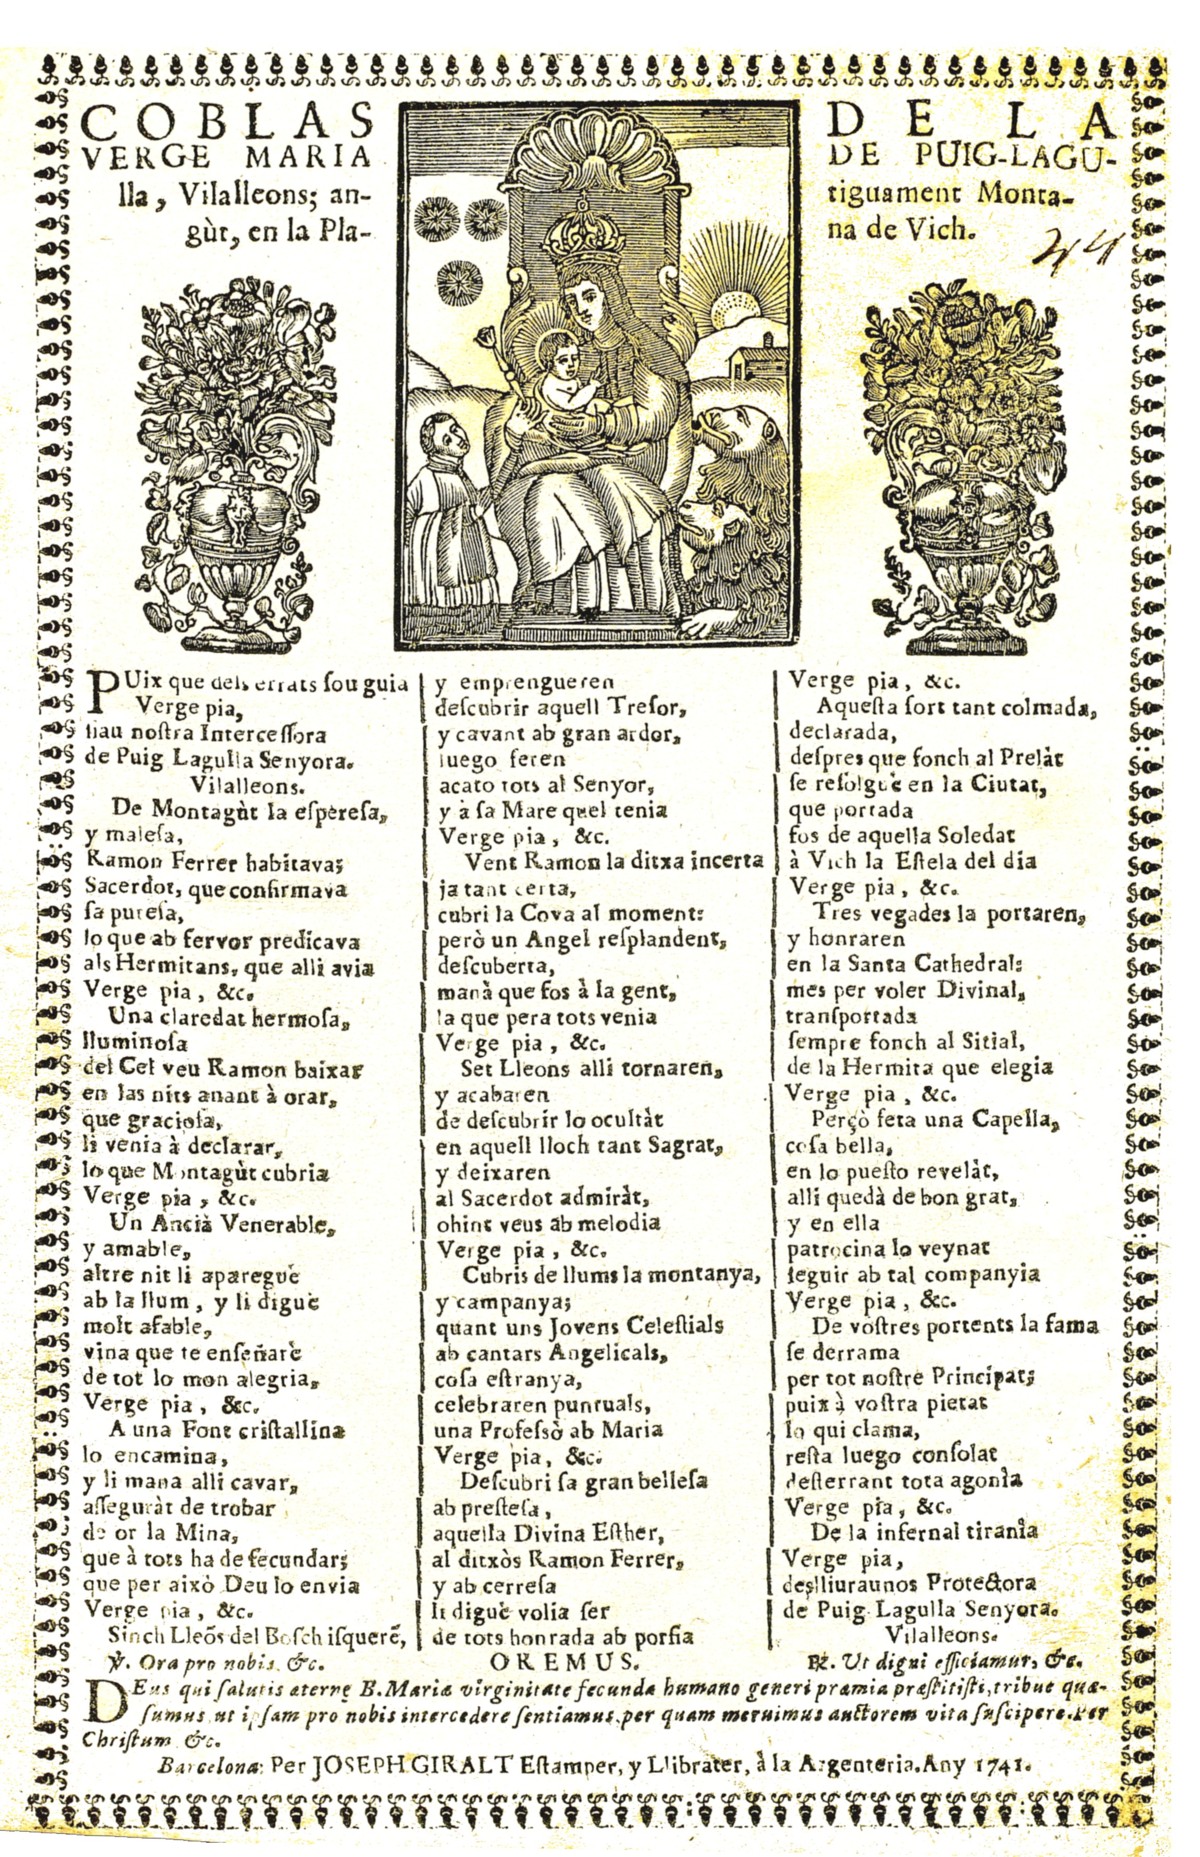 COBLAS DE LA
VERGE MARIA DE PUIG-LAGU-
lla, Vilalleons; antiguament Monta-
gùt, en la Plana de Vich.
24
PUix que dels errats sou guia
Verge pia,
siau nostra Intercessora
de Puig Lagulla Senyora.
Vilalleons.
De Montagùt la esperesa,
y malesa,
Ramon Ferrer habitava;
Sacerdot, que confirmava
sa puresa,
lo que ab fervor predicava
als Hermitans, que alli avia
Verge pia, &c.
Una claredat hermosa,
lluminosa
del Cel veu Ramon baixar
en las nits anant à orar,
que graciosa,
li venia à declarar,
lo que Montagùt cubria
Verge pia, &c.
Un Ancià Venerable,
y amable,
altre nit li aparegué
ab la llum, y li digué
molt afable,
vina que te enseñaré
de tot lo mon alegria,
Verge pia, &c.
A una Font cristallina
lo encamina,
y li mana alli cavar,
asseguràt de trobar
de or la Mina,
que à tots ha de fecundar;
que per això Deu lo envia
Verge pia, &c.
Sinch Lleõs del Bosch isquerẽ,
y emprengueren
descubrir aquell Tresor,
y cavant ab gran ardor,
luego feren
acato tots al Senyor,
y à sa Mare quel tenia
Verge pia, &c.
Vent Ramon la ditxa incerta
ja tant certa,
cubri la Cova al moment:
però un Angel resplandent,
descuberta,
manà que fos à la gent,
la que pera tots venia
Verge pia, &c.
Set Lleons alli tornaren,
y acabaren
de descubrir lo ocultàt
en aquell lloch tant Sagrat,
y deixaren
al Sacerdot admiràt,
ohint veus ab melodia
Verge pia, &c.
Cubris de llums la montanya,
y campanya;
quant uns Jovens Celestials
ab cantars Angelicals,
cosa estranya,
celebraren puntuals,
una Professò ab Maria
Verge pia, &c.
Descubri sa gran bellesa
ab prestesa,
aquella Divina Esther,
al ditxòs Ramon Ferrer,
y ab cerresa
li digué volia ser
de tots honrada ab porfia
Verge pia, &c.
Aquesta sort tant colmada,
declarada,
despres que fonch al Prelàt
se resolgué en la Ciutat,
que portada
fos de aquella Soledat
à Vich la Estela del dia
Verge pia, &c.
Tres vegades la portaren,
y honraren
en la Santa Cathedral:
mes per voler Divinal,
transportada
sempre fonch al Sitial,
de la Hermita que elegia
Verge pia, &c.
Perçò feta una Capella,
cosa bella,
en lo puesto revelàt,
alli quedà de bon grat,
y en ella
patrocina lo veynat
seguir ab tal companyia
Verge pia, &c.
De vostres portents la fama
se derrama
per tot nostre Principat;
puix à vostra pietat
lo qui clama,
resta luego consolat
desterrant tota agonia
Verge pia, &c.
De la infernal tirania
Verge pia,
deslliuraunos Protectora
de Puig Lagulla Senyora.
Vilalleons.
℣. Ora pro nobis. &c.
OREMUS.
℟. Ut digni efficiamur, &c.
DEus qui salutis æternę B. Mariæ virginitate fecunda humano generi præmia præstitisti, tribue quæ-
sumus ut ipsam pro nobis intercedere sentiamus, per quam meruimus auctorem vita suscipere. Per
Christum &c.
Barcelona: Per JOSEPH GIRALT Estamper, y Llibrater, à la Argenteria. Any 1741.